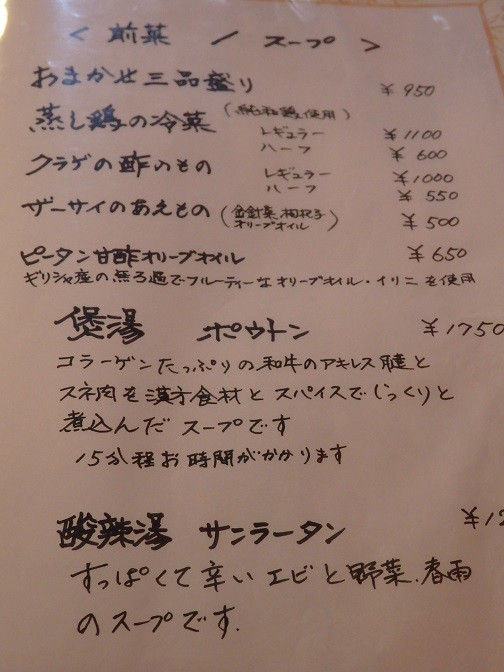 ＜ 前菜 ／ スープ ＞
おまかせ三品盛り ￥950
蒸し鶏の冷菜 (純和鶏使用) レギュラー ￥1100
ハーフ ￥600
クラゲの酢のもの レギュラー ￥1000
ハーフ ￥550
ザーサイのあえもの (金針菜、枸杞子 ￥500
オリーブオイル)
ピータン甘酢オリーブオイル ￥650
ギリシャ産の無ろ過でフルーティーなオリーブオイル・イリニを使用
煲湯 ポウトン ￥1750
コラーゲンたっぷりの和牛のアキレス腱と
スネ肉を漢方食材とスパイスでじっくりと
煮込んだスープです
15分程お時間がかかります
酸辣湯 サンラータン ￥12
すっぱくて辛いエビと野菜、春雨
のスープです.